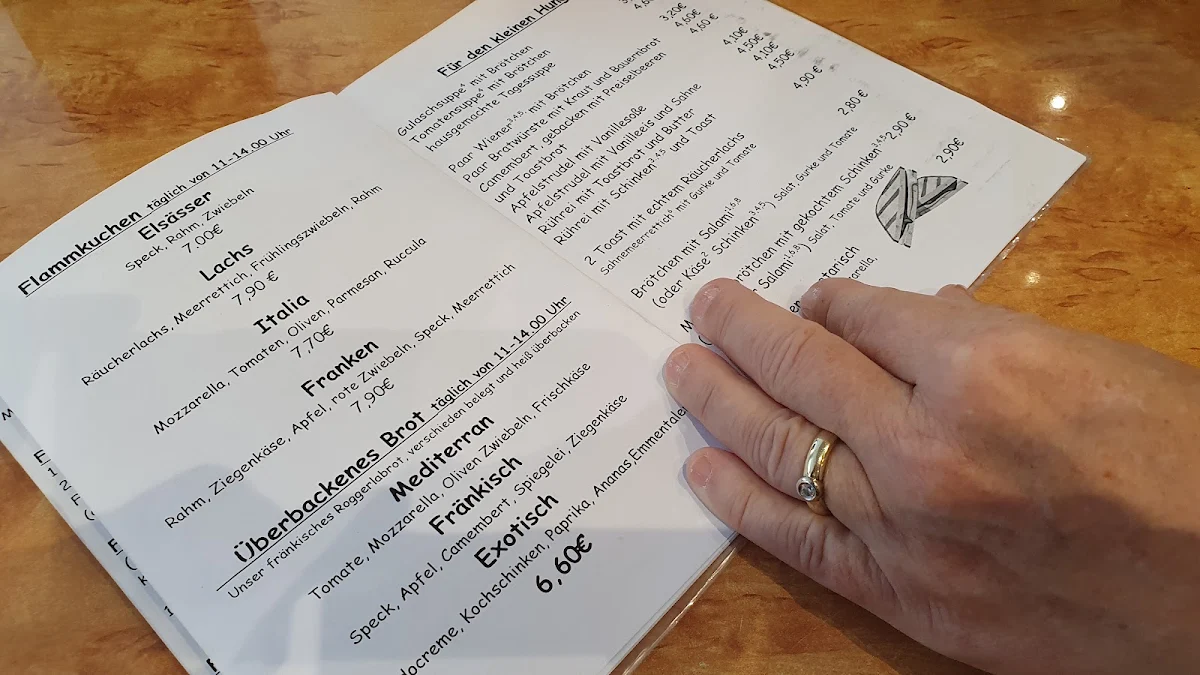 Flammkuchen täglich von 11-14.00 Uhr
Elsässer
Speck, Rahm, Zwiebeln
7.00€
Lachs
Räucherlachs, Meerrettich, Frühlingszwiebeln, Rahm
7,90 €
Italia
Mozzarella, Tomaten, Oliven, Parmesan, Ruccula
7,70€
Franken
Rahm, Ziegenkäse, Apfel, rote Zwiebeln, Speck, Meerrettich
7,90€
Überbackenes Brot täglich von 11-14.00 Uhr
Unser fränkisches Roggenlabrot, verschieden belegt und heiß überbacken
Mediterran
Tomate, Mozzarella, Oliven Zwiebeln, Frischkäse
Fränkisch
Speck, Apfel, Camembert, Spiegelei, Ziegenkäse
Exotisch
Kochschinken, Paprika, Ananas,
6,60€
Für den kleinen
Gulaschsuppe⁴ mit Brötchen
Tomatensuppe⁴ mit Brötchen
hausgemachte Tagessuppe
3,20€
Paar Wiener³·⁴·⁵, mit Brötchen 4,60€
Paar Bratwürste mit Kraut und Bauernbrot 4,60 €
Camembert, gebacken mit Preiselbeeren
und Toastbrot 4,10€
Apfelstrudel mit Vanillesoße 4,50€
Apfelstrudel mit Vanilleeis und Sahne 4,10€
Rührei mit Toastbrot und Butter 4,50€
Rührei mit Schinken³·⁴·⁵ und Toast 4,90 €
2 Toast mit echtem Räucherlachs
Sahnemeerrettich⁵ mit Gurke und Tomate 2,80 €
Brötchen mit Salami¹·⁶·⁸
(oder Käse² Schinken³·⁴·⁵,) Salat, Gurke und Tomate 2,90€
mit gekochtem Schinken³·⁴·⁵
Salami¹·⁶·⁸) Salat, Tomate und Gurke 2,90€